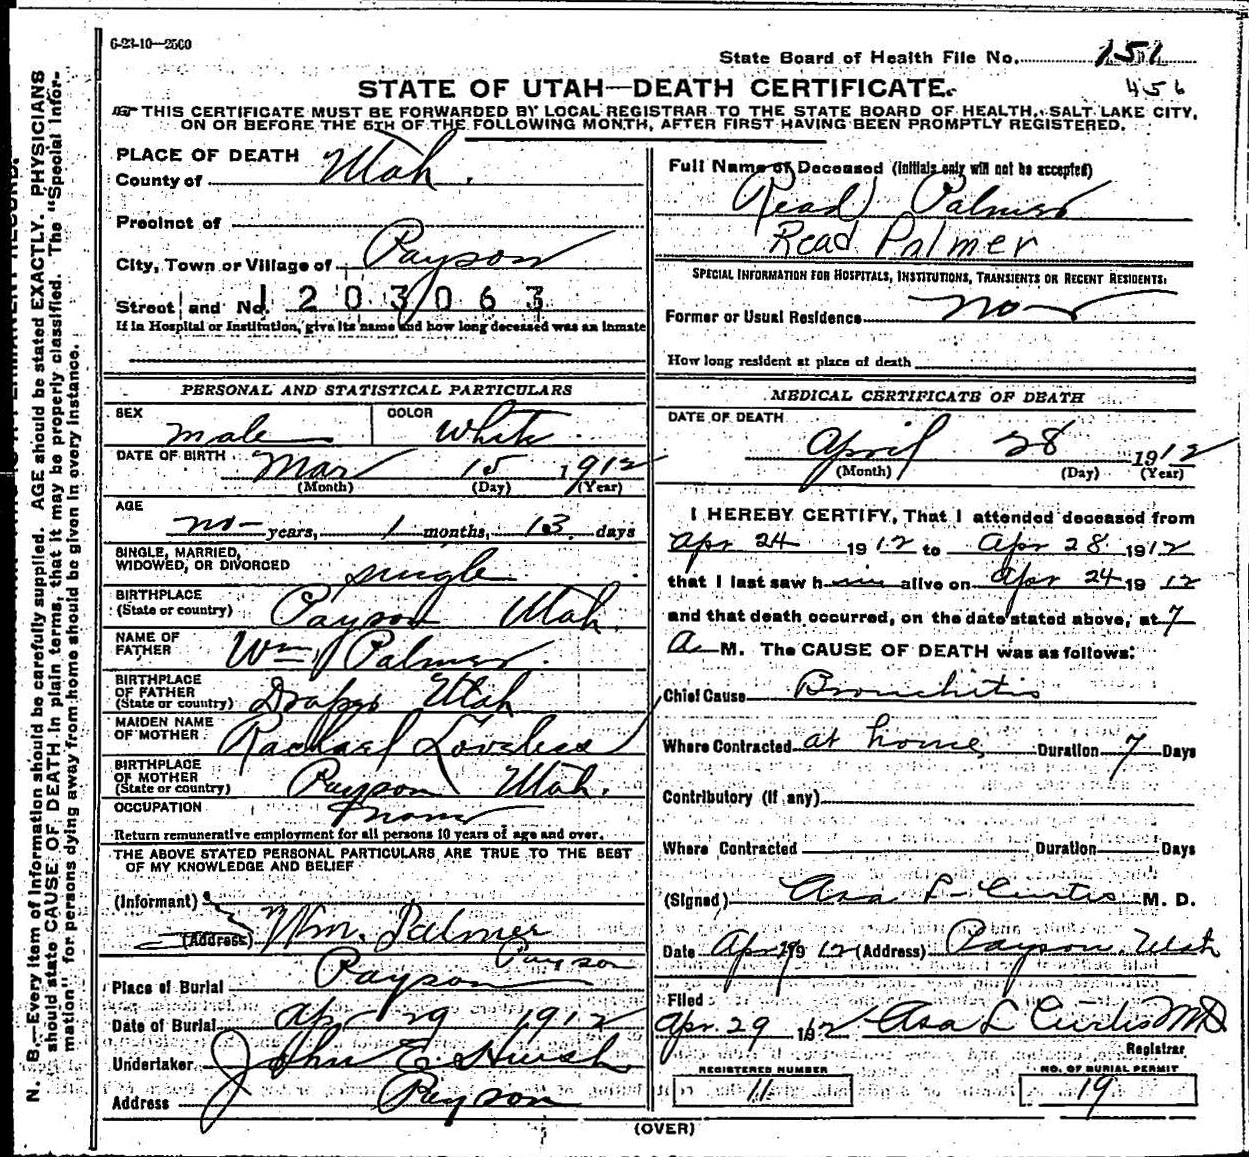 6-23-10—2500
State Board of Health File No. 151
456
STATE OF UTAH—DEATH CERTIFICATE.
THIS CERTIFICATE MUST BE FORWARDED BY LOCAL REGISTRAR TO THE STATE BOARD OF HEALTH, SALT LAKE CITY,
ON OR BEFORE THE 5TH OF THE FOLLOWING MONTH, AFTER FIRST HAVING BEEN PROMPTLY REGISTERED.
PLACE OF DEATH
County of Utah.
Precinct of
City, Town or Village of Payson
Street and No. 1203063
If in Hospital or Institution, give its name and how long deceased was an inmate
PERSONAL AND STATISTICAL PARTICULARS
SEX male
COLOR White
DATE OF BIRTH Mar 15 1912
(Month) (Day) (Year)
AGE
no years, 1 months, 13 days
SINGLE, MARRIED,
WIDOWED, OR DIVORCED single
BIRTHPLACE
(State or country) Payson Utah.
NAME OF
FATHER Wm Palmer.
BIRTHPLACE
OF FATHER
(State or country) Draper Utah
MAIDEN NAME
OF MOTHER Rachael Loveless
BIRTHPLACE
OF MOTHER
(State or country) Payson Utah.
OCCUPATION None
Return remunerative employment for all persons 10 years of age and over.
THE ABOVE STATED PERSONAL PARTICULARS ARE TRUE TO THE BEST
OF MY KNOWLEDGE AND BELIEF
(Informant)
(Address) Wm. Palmer
Payson
Place of Burial Payson
Date of Burial Apr 29 1912
Undertaker John E. Huish
Address Payson
Full Name of Deceased (Initials only will not be accepted)
Read Palmer
Read Palmer
SPECIAL INFORMATION FOR HOSPITALS, INSTITUTIONS, TRANSIENTS OR RECENT RESIDENTS:
Former or Usual Residence no
How long resident at place of death
MEDICAL CERTIFICATE OF DEATH
DATE OF DEATH
April 28 1912
(Month) (Day) (Year)
I HEREBY CERTIFY, That I attended deceased from
Apr 24 1912 to Apr 28 1912
that I last saw him alive on Apr 24 1912
and that death occurred, on the date stated above, at 7
A M. The CAUSE OF DEATH was as follows:
Chief Cause Bronchitis
Where Contracted at home Duration 7 Days
Contributory (if any)
Where Contracted Duration Days
(Signed) Asa L Curtis M. D.
Date Apr 29 1912 (Address) Payson, Utah
Filed
Apr. 29 1912 Asa L Curtis MD
Registrar
REGISTERED NUMBER
11
NO. OF BURIAL PERMIT
19
(OVER)
N. B.—Every item of information should be carefully supplied. AGE should be stated EXACTLY. PHYSICIANS
should state CAUSE OF DEATH in plain terms, that it may be properly classified. The "Special Infor-
mation" for persons dying away from home should be given in every instance.